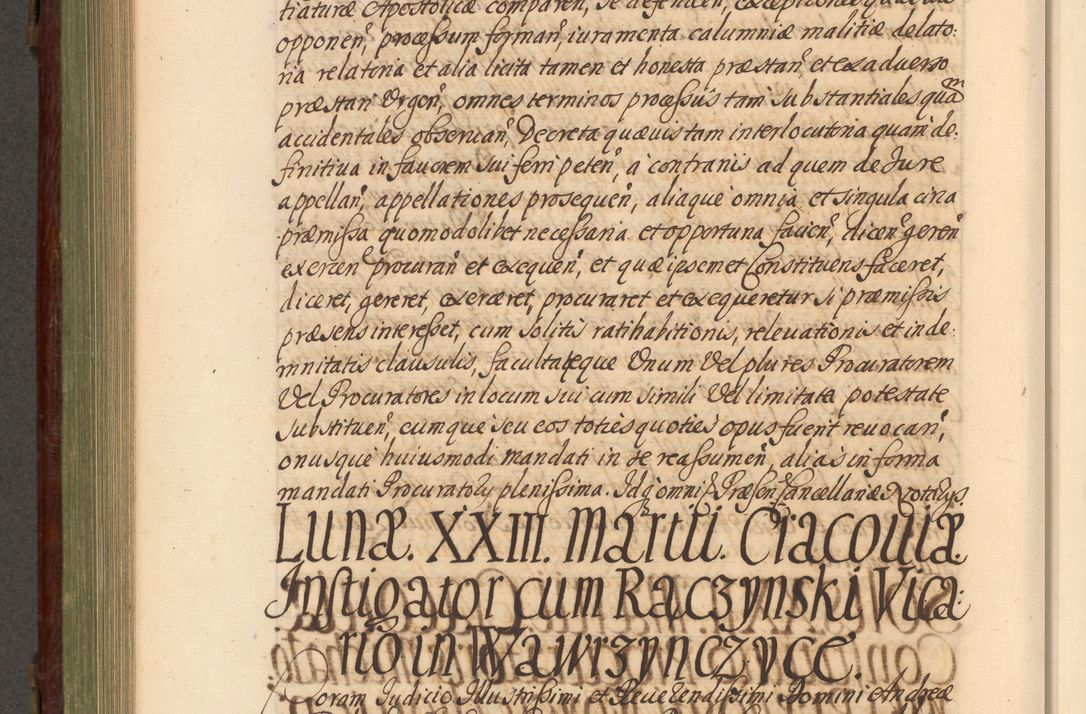 tiaturæ Apostolicæ comparen̄, se defenden̄, exceptiones quascun
opponen̄, processum forman̄, iuramenta calumniæ malitiæ delato:
ria relatoria et alia licita tamen et honesta præstan̄, et ex adverso
præstari Vrgen̄, omnes terminos processus tam substantiales quam
accidentales observan̄, Decreta quævis tam interlocutoria quam de:
finitiva in favorem sui ferri peten̄, à contrariis ad quem de Jure
appellan̄, appellationes prosequen̄, aliaque omnia et singula circa
præmissa quomodolibet necessaria et opportuna facien̄, dicen̄ geren̄
exercen̄ procuran̄ et exequen̄, et quæ ipsemet Constituens faceret,
diceret, gereret, exerceret, procuraret et exequeretur si præmissis
præsens interesset, cum solitis ratihabitionis, relevationis et inde:
mnitatis clausulis, facultateque Vnum Vel plures Procuratorem
Vel Procuratores in locum sui cum simili Vel limitata potestate
substituen̄, eumque seu eos toties quoties opus fuerit revocan̄,
onusque huiusmodi mandati in se reassumen̄, alias in forma
mandati Procuratorÿ plenissima. Id q̄ omni Præsen̄ Cancellariæ Notarys
Lunæ. XXIII. Martii. Cracoviæ.
Instigator cum Raczynski Vica:
rio in Wawrzynczyce.
Coram Judicio Illustrissimi et Reverendissimi Domini Andreæ